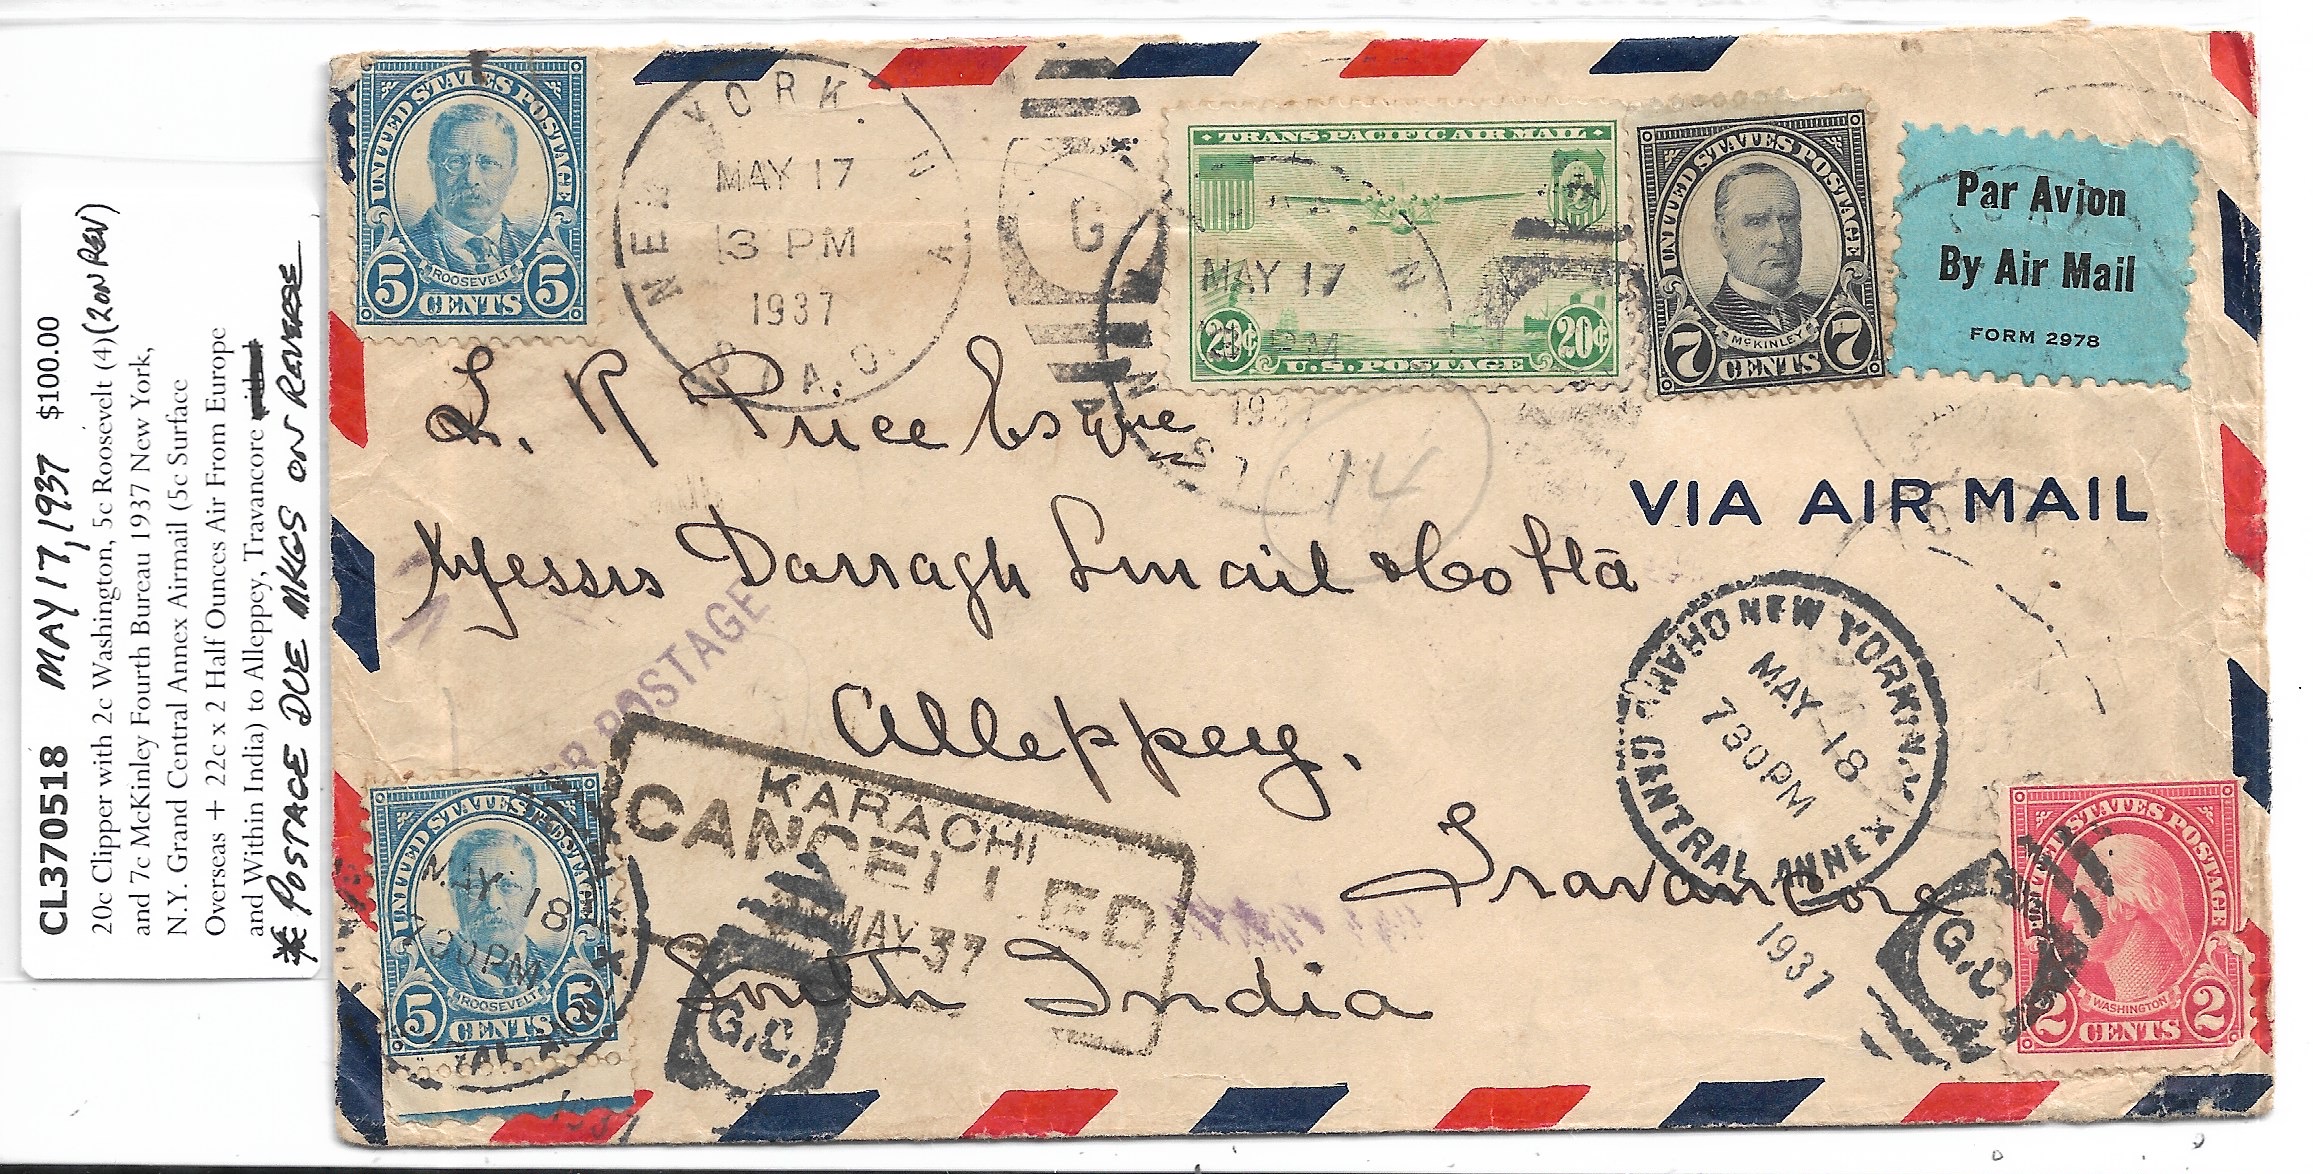 CL370518 MAY 17, 1937 $100.00
20c Clipper with 2c Washington, 5c Roosevelt (4) (2 ON REV)
and 7c McKinley Fourth Bureau 1937 New York,
N.Y. Grand Central Annex Airmail (5c Surface
Overseas + 22c x 2 Half Ounces Air From Europe
and Within India) to Alleppey, Travancore
* POSTAGE DUE MKGS ON REVERSE
UNITED STATES POSTAGE
ROOSEVELT
5 CENTS 5
NEW YORK
MAY 17
13 PM
1937
STA. O.
G
TRANS-PACIFIC AIR MAIL
MAY 17
1937
20¢ 20¢
U.S. POSTAGE
UNITED STATES POSTAGE
McKINLEY
7 CENTS 7
Par Avion
By Air Mail
FORM 2978
L. R Price Esque
14
VIA AIR MAIL
Messrs Darragh Smail & Co Ltd
POSTAGE
Alleppey,
Travancore
South India
GRAND CENTRAL ANNEX
NEW YORK, N.Y.
MAY 18
730 PM
1937
G.C.
KARACHI
CANCELLED
MAY 37
UNITED STATES POSTAGE
MAY 18
730 PM
ROOSEVELT
5 CENTS 5
1937
G.C.
UNITED STATES POSTAGE
WASHINGTON
2 CENTS 2